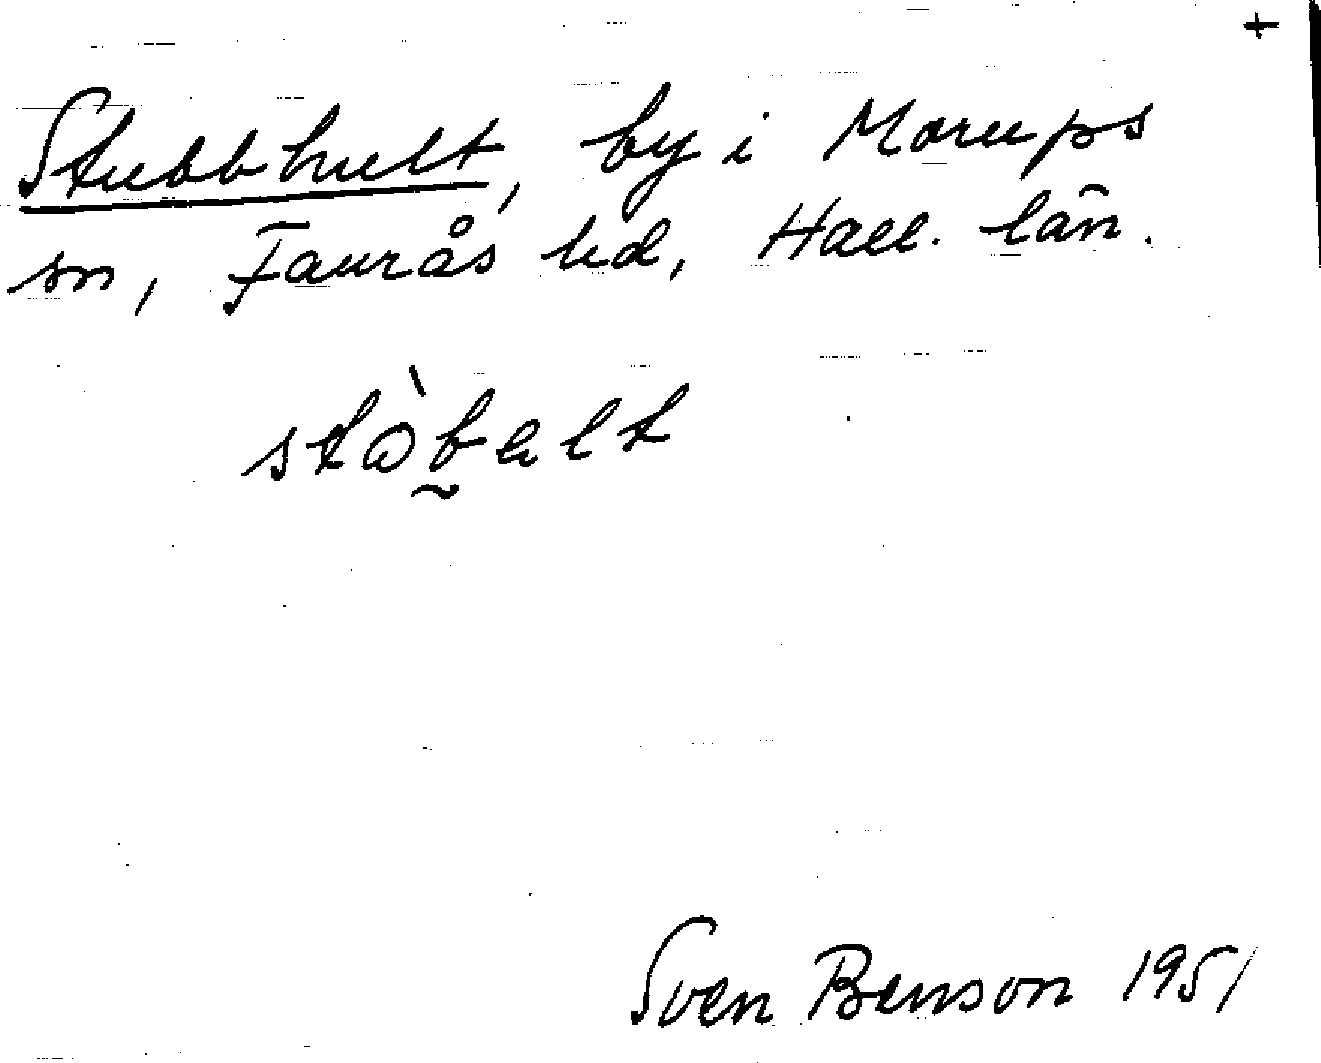 +
Stubbhult, by i Morups
sn, Faurås hd, Hall. län.
stò̰balt
Sven Benson 1951